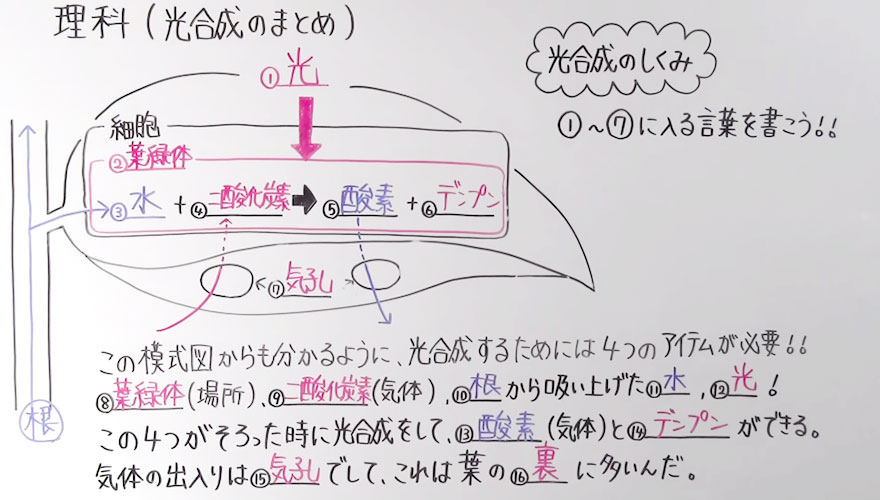 理科(光合成のまとめ)
光合成のしくみ
①~⑦に入る言葉を書こう!!
①光
細胞
②葉緑体
③水+④二酸化炭素➡⑤酸素+⑥デンプン
⑦気孔
根
この模式図からも分かるように、光合成するためには4つのアイテムが必要!!
⑧葉緑体(場所)、⑨二酸化炭素(気体)、⑩根から吸い上げた⑪水、⑫光!
この4つがそろった時に光合成をして、⑬酸素(気体)と⑭デンプンができる。
気体の出入りは⑮気孔でして、これは葉の⑯裏に多いんだ。